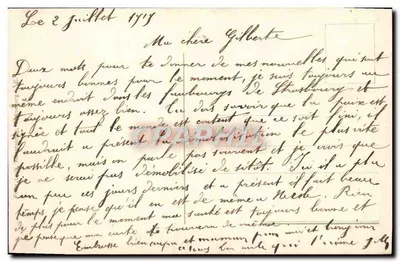 Le 2 Juillet 1919
Ma chère Gilberte
Deux mots pour te donner de mes nouvelles qui sont
toujours bonnes pour le moment, je suis toujours au
même endroit dans les faubourgs de Strasbourg et
toujours assez bien. Tu dois savoir que la paix est
signée et tout le monde est content que ce soit fini, il
faudrait a présent la démobilisation le plus vite
possible, mais on parle pas souvent et je crois que
je ne serai pas démobilisé de sitôt. Ici il a plu
un peu ces jours derniers et a présent il fait beau
temps je pense qu'il en est de même a Rien
de plus pour le moment ma santé est toujours bonne et
je pense que ma carte te trouvera de même
Embrasse bien papa et maman pour moi et bonjour
a tous ton amie qui t'aime